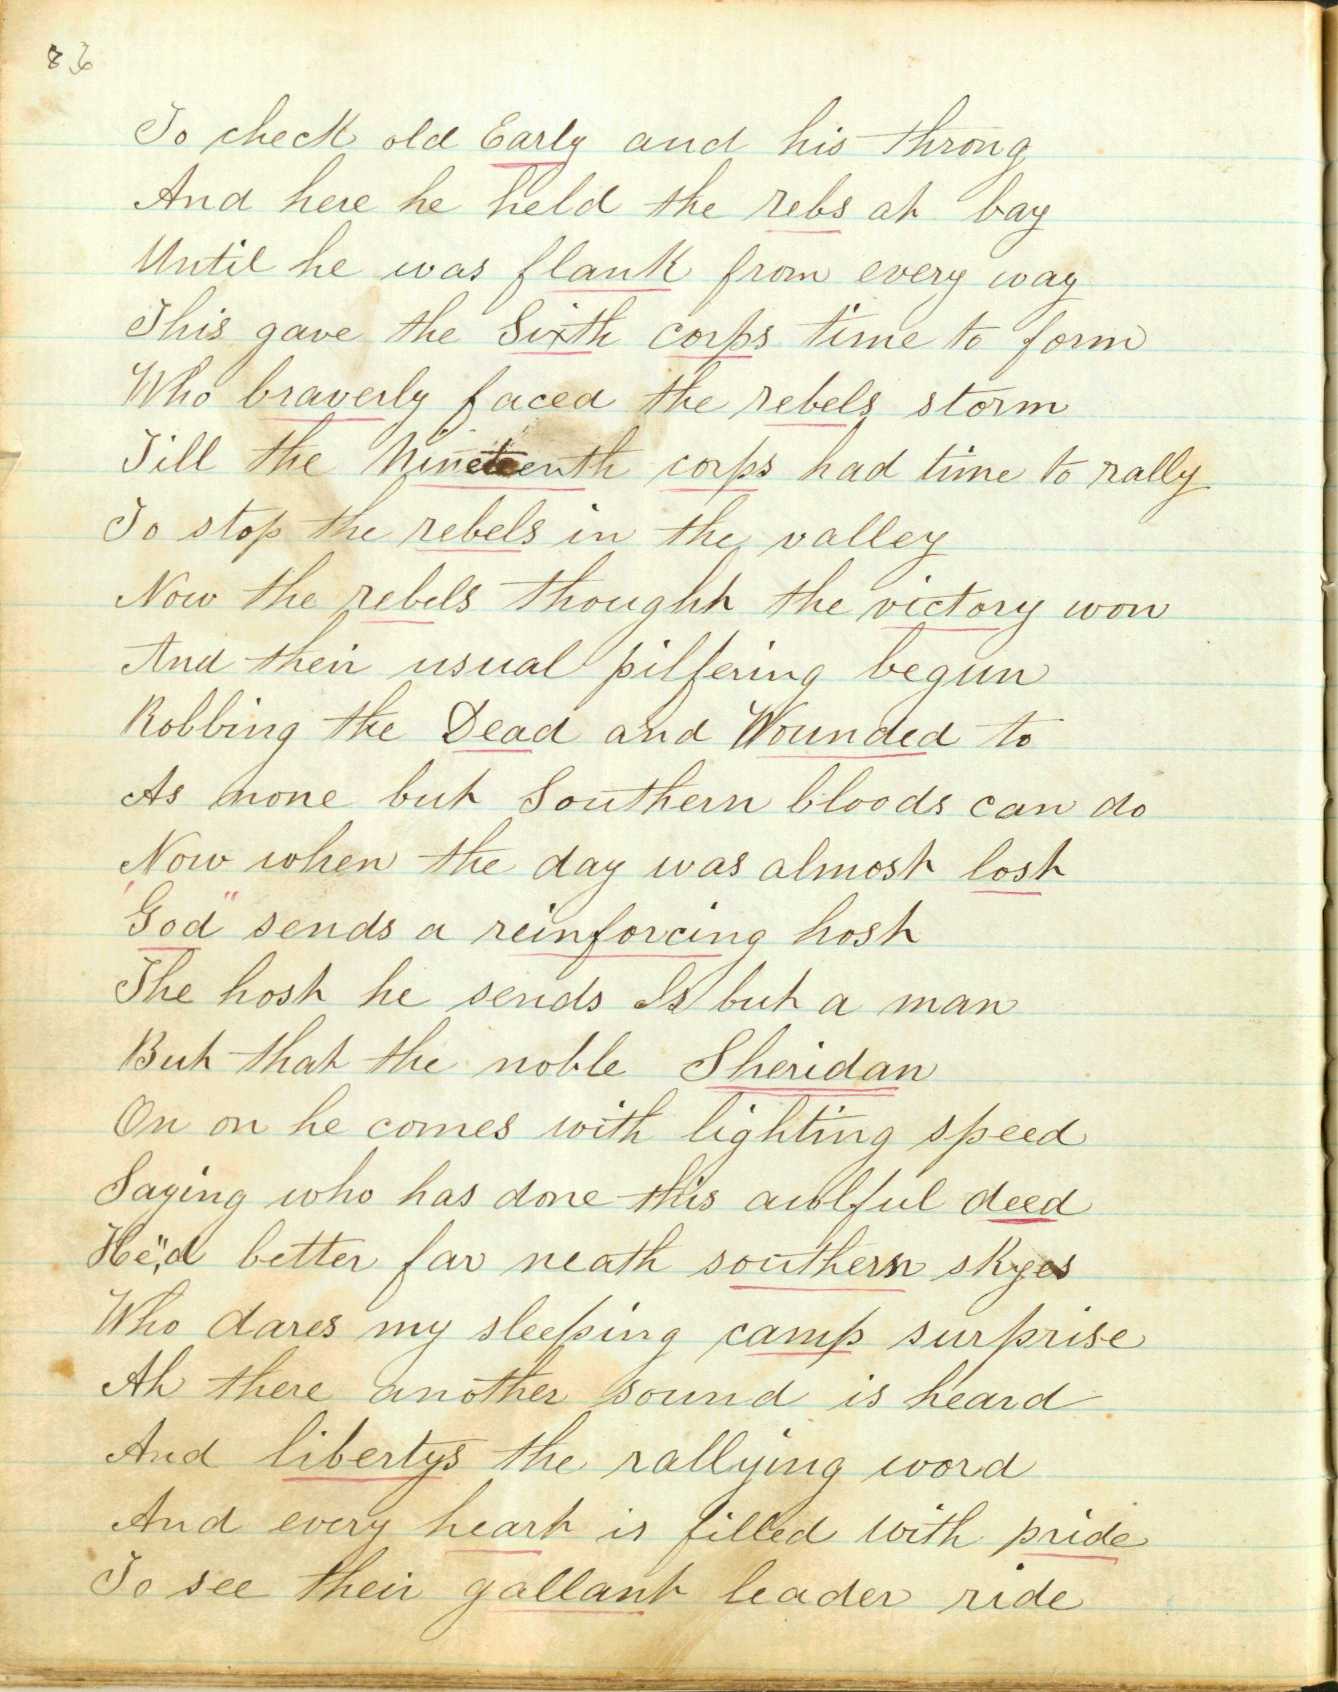 86
To check old Early and his throng
And here he held the rebs at bay
Until he was flank from every way
This gave the Sixth corps time to form
Who braverly faced the rebels storm
Till the Nineteenth corps had time to rally
To stop the rebels in the valley
Now the rebels thought the victory won
And their usual pilfering begun
Robbing the Dead and Wounded to
As none but Southern bloods can do
Now when the day was almost lost
"God" sends a reinforcing host
The host he sends Is but a man
But that the noble Sheridan
On on he comes with lighting speed
Saying who has done this awlful deed
He,"d better far neath southern skyes
Who dares my sleeping camp surprise
Ah there another sound is heard
And libertys the rallying word
And every heart is filled with pride
To see their gallant leader ride